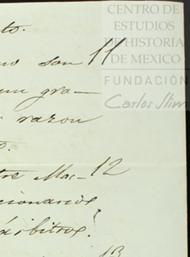 CENTRO DE
ESTUDIOS
DE HISTORIA
DE MEXICO
FUNDACIÓN
Carlos Slim
to.
no son 11
un gra-
razon
o.
tre Mac- 12
cionarios
árbitros?
13